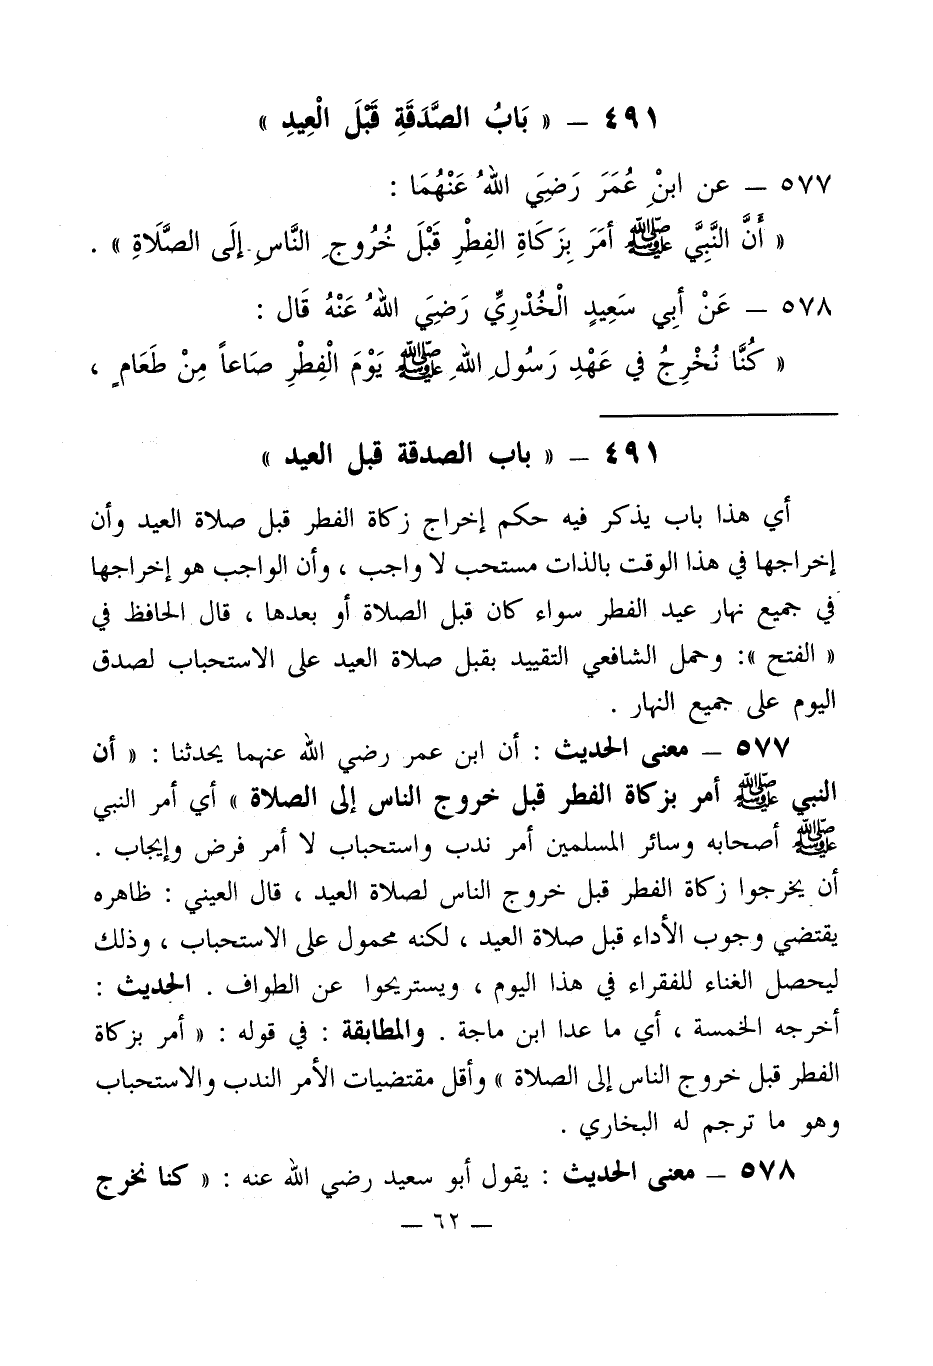 ٤٩١ – « بَابُ الصَّدَقَةِ قَبْلَ الْعِيدِ »
٥٧٧ – عن ابنْ عُمَرَ رَضِيَ اللهُ عَنْهُمَا :
« أَنَّ النَّبِيَّ ﷺ أمَرَ بِزَكَاةِ الفِطْرِ قَبْلَ خُرُوجِ النَّاسِ إلَى الصَّلَاةِ » .
٥٧٨ – عَنْ أبِي سَعِيدٍ الْخُدْرِيِّ رَضِيَ اللهُ عَنْهُ قَال :
« كُنَّا نُخْرِجُ في عَهْدِ رَسُولِ اللهِ ﷺ يَوْمَ الْفِطْرِ صَاعاً مِنْ طَعَامٍ ،
٤٩١ – « باب الصدقة قبل العيد »
أي هذا باب يذكر فيه حكم إخراج زكاة الفطر قبل صلاة العيد وأن
إخراجها في هذا الوقت بالذات مستحب لا واجب ، وأن الواجب هو إخراجها
في جميع نهار عيد الفطر سواء كان قبل الصلاة أو بعدها ، قال الحافظ في
« الفتح »: وحمل الشافعي التقييد بقبل صلاة العيد على الاستحباب لصدق
اليوم على جميع النهار .
٥٧٧ – معنى الحديث : أن ابن عمر رضي الله عنهما يحدثنا : « أن
النبي ﷺ أمر بزكاة الفطر قبل خروج الناس إلى الصلاة » أي أمر النبي
ﷺ أصحابه وسائر المسلمين أمر ندب واستحباب لا أمر فرض وإيجاب .
أن يخرجوا زكاة الفطر قبل خروج الناس لصلاة العيد ، قال العيني : ظاهره
يقتضي وجوب الأداء قبل صلاة العيد ، لكنه محمول على الاستحباب ، وذلك
ليحصل الغناء للفقراء في هذا اليوم ، ويستريحوا عن الطواف . الحديث :
أخرجه الخمسة ، أي ما عدا ابن ماجة . والمطابقة : في قوله : « أمر بزكاة
الفطر قبل خروج الناس إلى الصلاة » وأقل مقتضيات الأمر الندب والاستحباب
وهو ما ترجم له البخاري .
٥٧٨ – معنى الحديث : يقول أبو سعيد رضي الله عنه : « كنا نخرج
– ٦٢ –